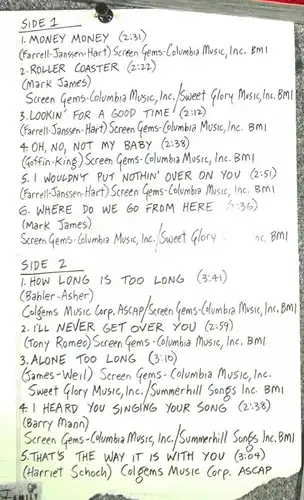 SIDE 1
1. MONEY MONEY (2:31)
(Farrell-Janssen-Hart) Screen Gems-Columbia Music, Inc. BMI
2. ROLLER COASTER (2:22)
(Mark James)
Screen Gems-Columbia Music, Inc./Sweet Glory Music, Inc. BMI
3. LOOKIN' FOR A GOOD TIME (2:12)
(Farrell-Janssen-Hart) Screen Gems-Columbia Music, Inc. BMI
4. OH, NO, NOT MY BABY (2:38)
(Goffin-King) Screen Gems-Columbia Music, Inc. BMI
5. I WOULDN'T PUT NOTHIN' OVER ON YOU (2:51)
(Farrell-Janssen-Hart) Screen Gems-Columbia Music, Inc. BMI
6. WHERE DO WE GO FROM HERE (:36)
(Mark James)
Screen Gems-Columbia Music, Inc./Sweet Glory Inc. BMI
SIDE 2
1. HOW LONG IS TOO LONG (3:41)
(Bahler-Asher)
Colgems Music Corp. ASCAP/Screen Gems-Columbia Music, Inc. BMI
2. I'LL NEVER GET OVER YOU (2:59)
(Tony Romeo) Screen Gems-Columbia Music, Inc. BMI
3. ALONE TOO LONG (3:10)
(James-Weil) Screen Gems-Columbia Music, Inc.
Sweet Glory Music, Inc./Summerhill Songs Inc. BMI
4. I HEARD YOU SINGING YOUR SONG (2:38)
(Barry Mann)
Screen Gems-Columbia Music, Inc./Summerhill Songs, Inc. BMI
5. THAT'S THE WAY IT IS WITH YOU (3:04)
(Harriet Schoch) Colgems Music Corp. ASCAP